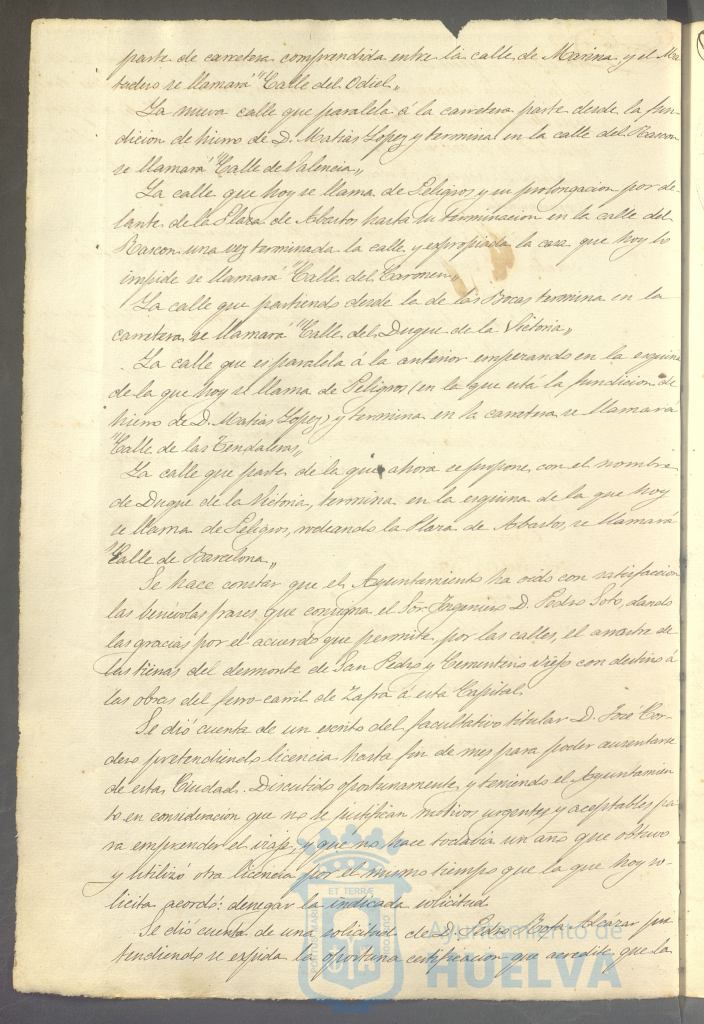 parte de carretera comprendida entre la calle de Marina y el Ma-
tadero se llamará "Calle del Odiel„
La nueva calle que paralela á la carretera parte desde la fun-
dicion de hierro de D. Matias Lopez y termina en la calle del Rascon
se llamará "Calle de Valencia„
La calle que hoy se llama de Peligros y su prolongacion por de-
lante de la Plaza de Abastos hasta su terminacion en la calle del
Rascon una vez terminada la calle y expropiada la casa que hoy lo
impide se llamará "Calle del Carmen„
La calle que partiendo desde la de las Bocas termina en la
carretera, se llamará "Calle del Duque de la Victoria„
La calle que es paralela á la anterior empezando en la esquina
de la que hoy se llama de Peligros (en la que está la fundicion de
hierro de D. Matias Lopez) y termina en la carretera se llamará
"Calle de las Tendaleras„
La calle que parte de la que ahora se propone con el nombre
de Duque de la Victoria, termina en la esquina de la que hoy
se llama de Peligros, rodeando la Plaza de Abastos, se llamará
"Calle de Barcelona„
Se hace constar que el Ayuntamiento ha oido con satisfaccion
las benévolas frases que consigna el Sor Ingeniero D. Pedro Soto, dando
las gracias por el acuerdo que permite por las calles, el arrastre de
las tierras del desmonte de San Pedro y Cementerio viejo con destino á
las obras del ferro-carril de Zafra á esta Capital.
Se dió cuenta de un escrito del facultativo titular D. José Cor-
dero pretendiendo licencia hasta fin de mes para poder ausentarse
de esta Ciudad. Discutido oportunamente, y teniendo el Ayuntamien-
to en consideracion que no se justifican motivos urgentes y aceptables pa-
ra emprender el viaje, y que no hace todavia un año que obtuvo
y utilizó otra licencia por el mismo tiempo que la que hoy so-
licita acordó: denegar la indicada solicitud.
Se dió cuenta de una solicitud de D. Pedro Bofa Alcázar pre-
tendiendo se expida la oportuna certificacion que acredite que la
ET TERRÆ
Ayuntamiento de
HUELVA